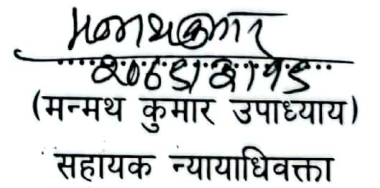 मन्मथ कुमार
(मन्मथ कुमार उपाध्याय)
सहायक न्यायाधिवक्ता